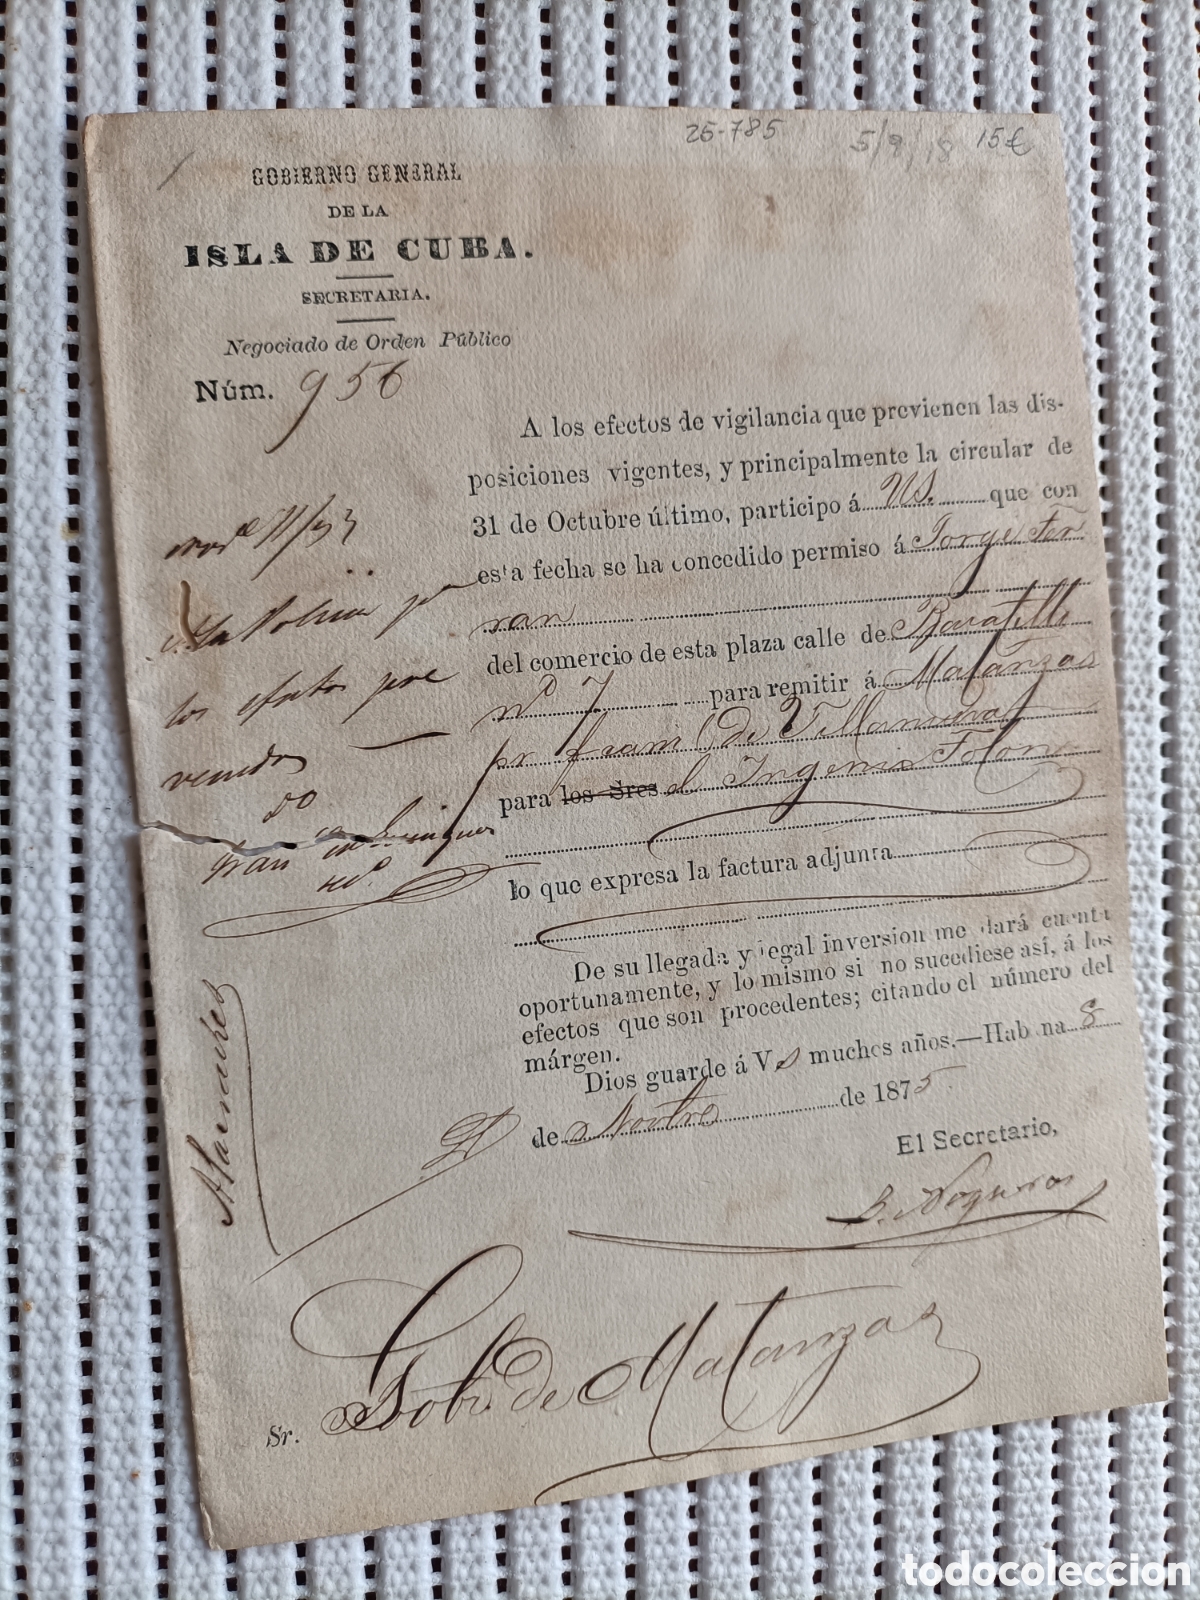 25-785 5/9/18 15€
GOBIERNO GENERAL
DE LA
ISLA DE CUBA.
SECRETARIA.
Negociado de Orden Público
Núm. 956
A los efectos de vigilancia que previenen las dis-
posiciones vigentes, y principalmente la circular de
31 de Octubre último, participo á VS. que con
esta fecha se ha concedido permiso á Jorge Fer
ran
del comercio de esta plaza calle de Baratillo
nº 7 para remitir á Matanzas
pr ferro-carril de Villanueva
para los Sres el Ingenio
lo que expresa la factura adjunta
De su llegada y legal inversion me dará cuenta
oportunamente, y lo mismo si no sucediese así, á los
efectos que son procedentes; citando el número del
márgen.
Dios guarde á VS muchos años.—Habana 8
de Novbre de 1875.
El Secretario,
B. Nogueras
Sr. Gobr. de Matanzas
A la Policia pa
los efectos pre
venidos
todocoleccion